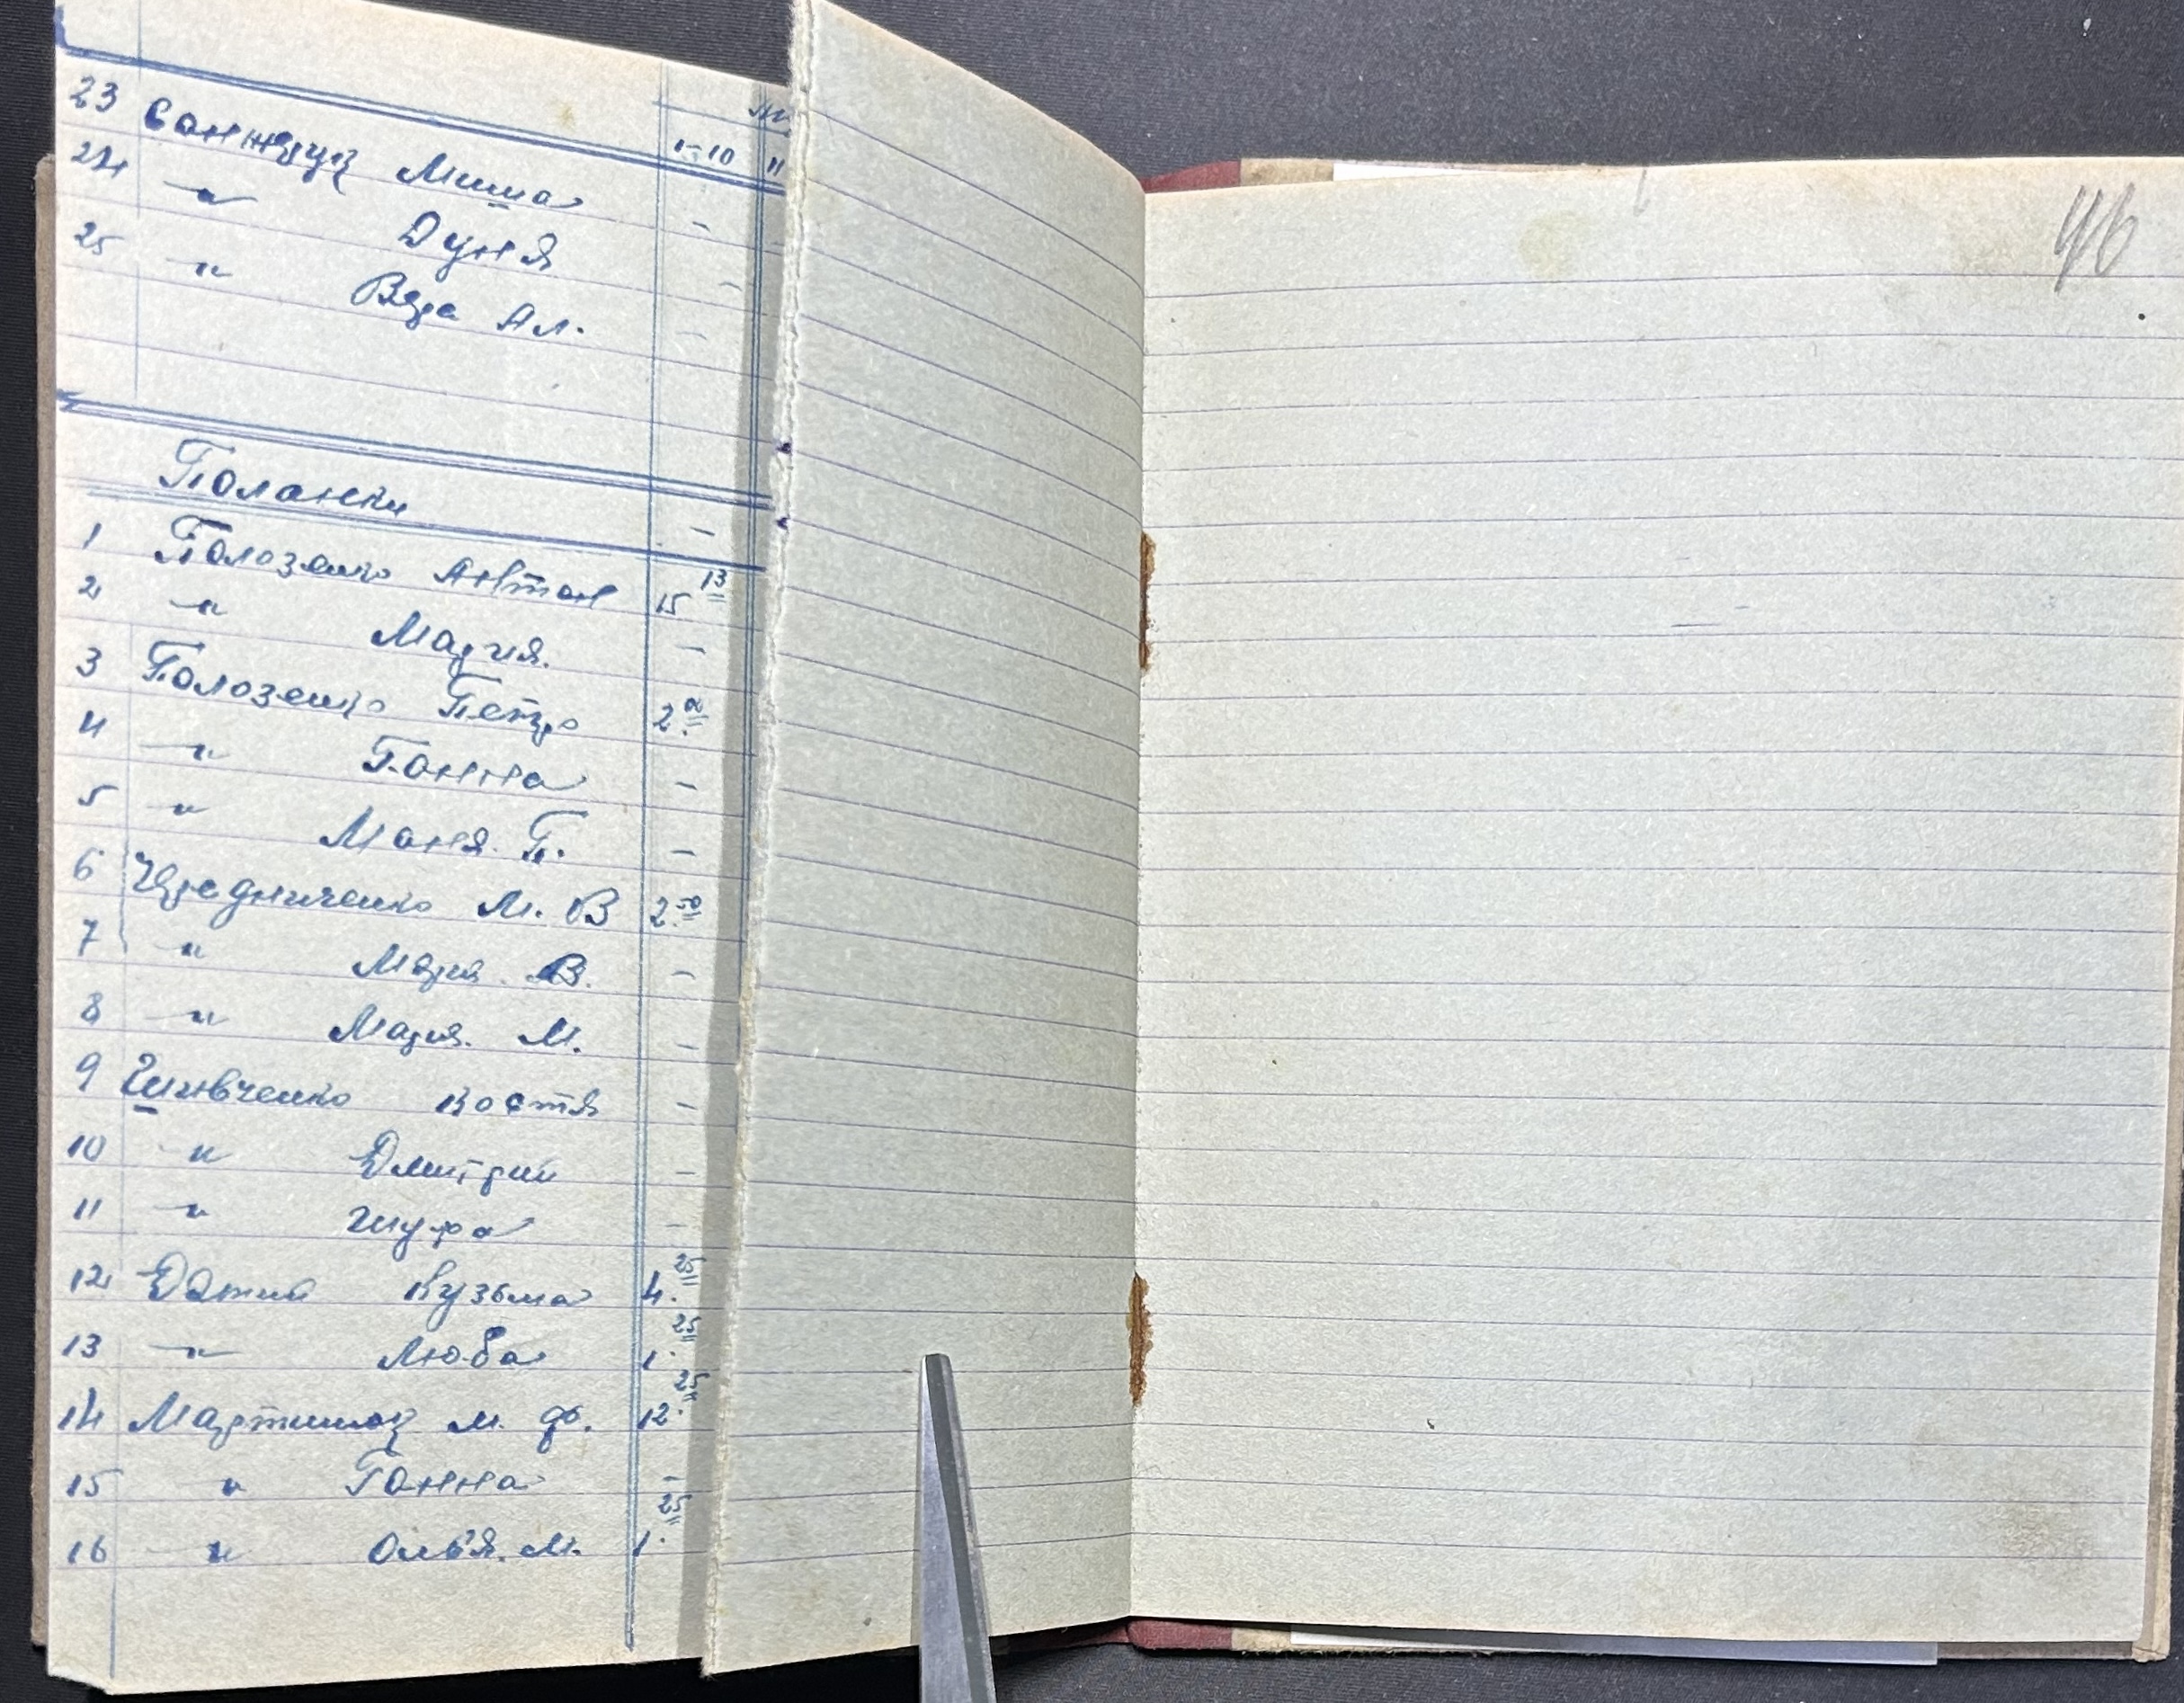 1-10 11
23 Санжук Миша -
24 -"- Дуня -
25 -"- Вера Ал. -
Поланки -
1 Полозенко Антон 15 13
2 -"- Мария. -
3 Полозенко Петро 2.00
4 -"- Ганна -
5 " Маня. П. -
6 Чередниченко М. В 2.50
7 " Мария. В. -
8 -"- Мария. М. -
9 Шевченко Костя -
10 " Дмитрий -
11 -"- Шура -
12 Кузьма 4.25
13 -"- Люба 1.25
14 Мартинюк М. Ф. 12.25
15 " Ганна -
16 " М. 1.25
46